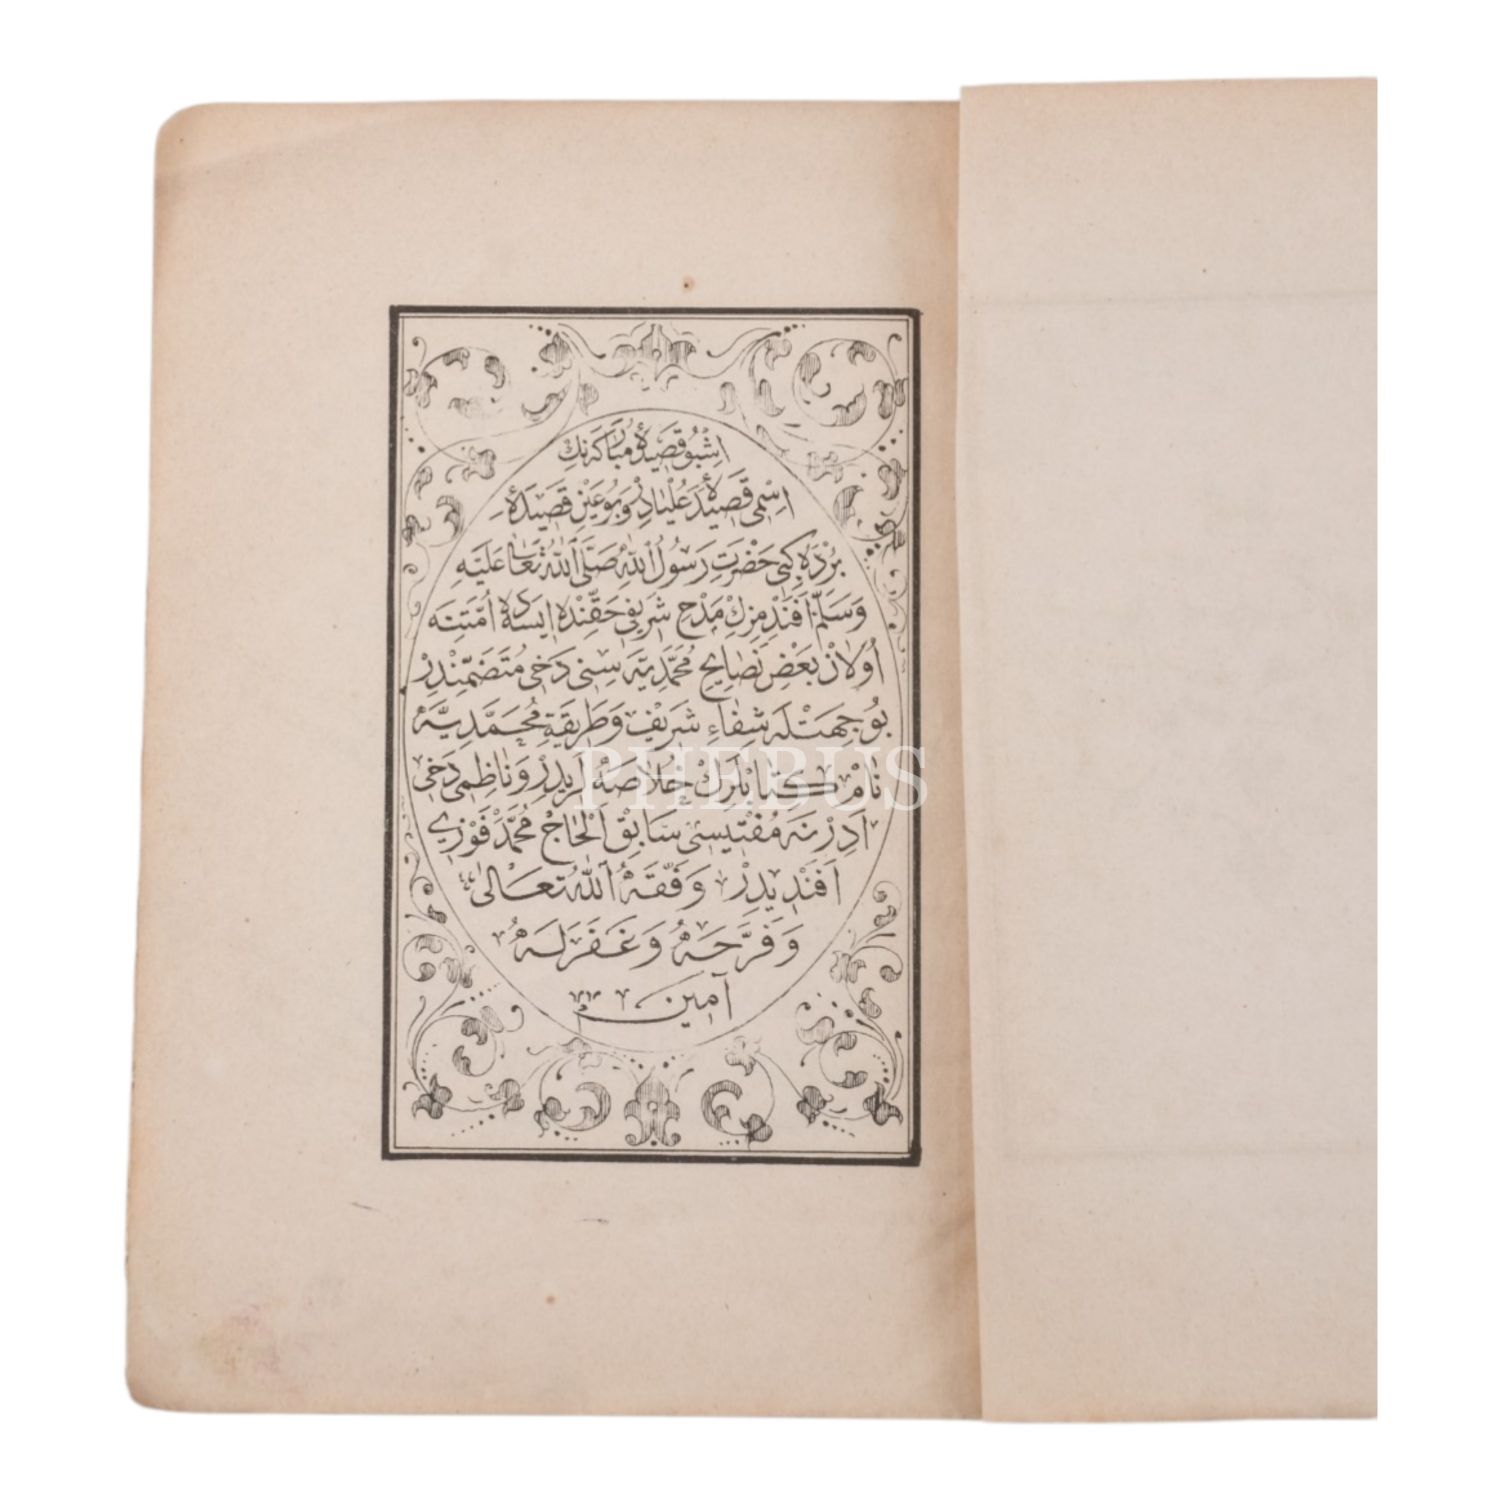 اِشْبُو قَصِيدَهٔ مُبَارَكَه‌نِكْ
اِسْمِى قَصِيدَهٔ عُلْيَادِرْ وَبُو عَيْنِ قَصِيدَهٔ
بُرْدَه كِبِى حَضْرَتِ رَسُولُ اللّٰهِ صَلَّى اللّٰهُ تَعَالٰى عَلَيْهِ
وَسَلَّمْ اَفَنْدِمِزِكْ مَدْحِ شَرِيفِ حَقِّنْدَه اِيسَه‌دَه اُمَّتِنَه
اُولَانْ بَعْضِ نَصَايِحِ مُحَمَّدِيَّه سِنِى دَخِى مُتَضَمِّنْدِرْ
بُو جِهَتْلَه شِفَاءِ شَرِيفْ وَطَرِيقَةِ مُحَمَّدِيَّه
نَامْ كِتَابْلَرِكْ خُلَاصَه لَرِيدِرْ وَنَاظِمِى دَخِى
اَدِرْنَه مُفْتِيسِى سَابِقْ اَلْحَاجْ مُحَمَّدْ فَوْزِي
اَفَنْدِيدِرْ وَفَّقَهُ اللّٰهُ تَعَالٰى
وَفَرَّحَهُ وَغَفَرَلَهُ
آمِينَ
PHEBUS